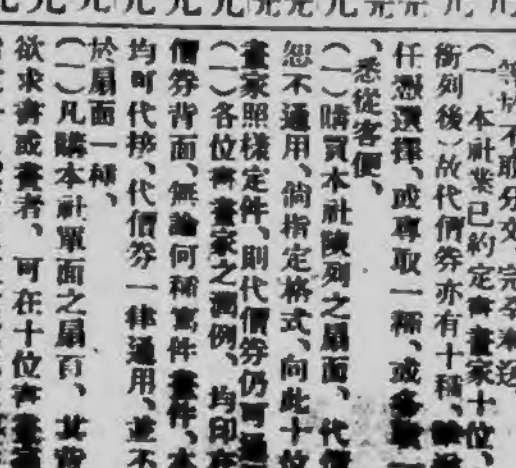 元元元元元元元元元
等於不取分文、完全奉送、
（一）本社業已約定書畫家十位、
衡列後）故代價券亦有十種、
任憑選擇、或專取一種、或多
、悉從客便、
（一）購買本社陳列之扇面、代價
恕不通用、倘指定格式、向此十位
畫家照樣定件、則代價券仍可通
（一）各位書畫家之潤例、均印在
價券背面、無論何種書件畫件、本
均可代移、代價券一律通用、並不
於扇面一種、
（一）凡購本社單面之扇頁、其背
欲求書或畫者、可在十位書畫